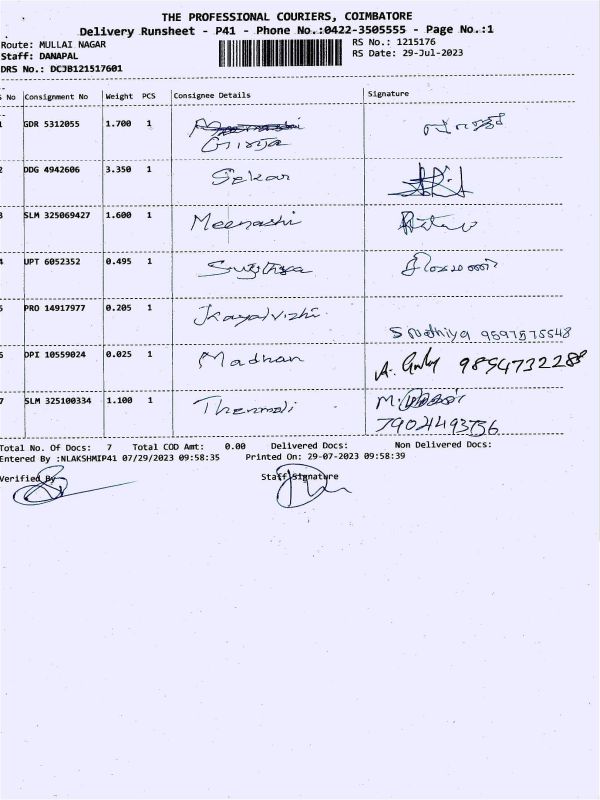 THE PROFESSIONAL COURIERS, COIMBATORE
Delivery Runsheet - P41 - Phone No.:0422-3505555 - Page No.:1
Route: MULLAI NAGAR
RS No.: 1215176
Staff: DANAPAL
RS Date: 29-Jul-2023
DRS No.: DCJB121517601
S No Consignment No Weight PCS Consignee Details Signature
1 GDR 5312055 1.700 1
Girija
2 DDG 4942606 3.350 1 Sekar
3 SLM 325069427 1.600 1 Meenashi
4 UPT 6052352 0.495 1
5 PRO 14917977 0.205 1 Kayalvizhi
9597575548
6 DPI 10559024 0.025 1 Madhan 9894732288
7 SLM 325100334 1.100 1 Thenmoli M.
7904493756
Total No. Of Docs: 7 Total COD Amt: 0.00 Delivered Docs: Non Delivered Docs:
Entered By :NLAKSHMIP41 07/29/2023 09:58:35 Printed On: 29-07-2023 09:58:39
Verified By Staff Signature